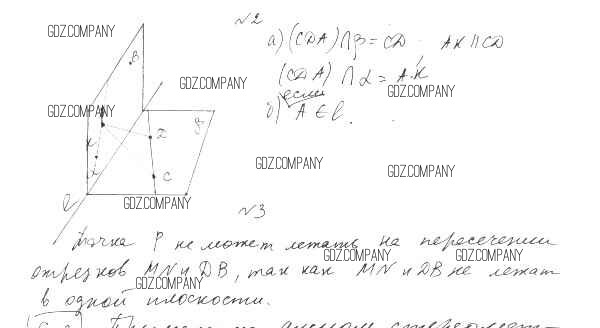 №2
GDZ.COMPANY
а) (CDA)∩β = CD , AK ∩ CD
β
GDZ.COMPANY
(CDA) ∩ α = AK
GDZ.COMPANY
если
GDZ.COMPANY
б) A ∈ l.
β
K
D
GDZ.COMPANY
GDZ.COMPANY
C
l
GDZ.COMPANY
№3
Точка P не может лежать на пересечении
GDZ.COMPANY GDZ.COMPANY
отрезков MN и DB, так как MN и DB не лежат
GDZ.COMPANY
в одной плоскости.